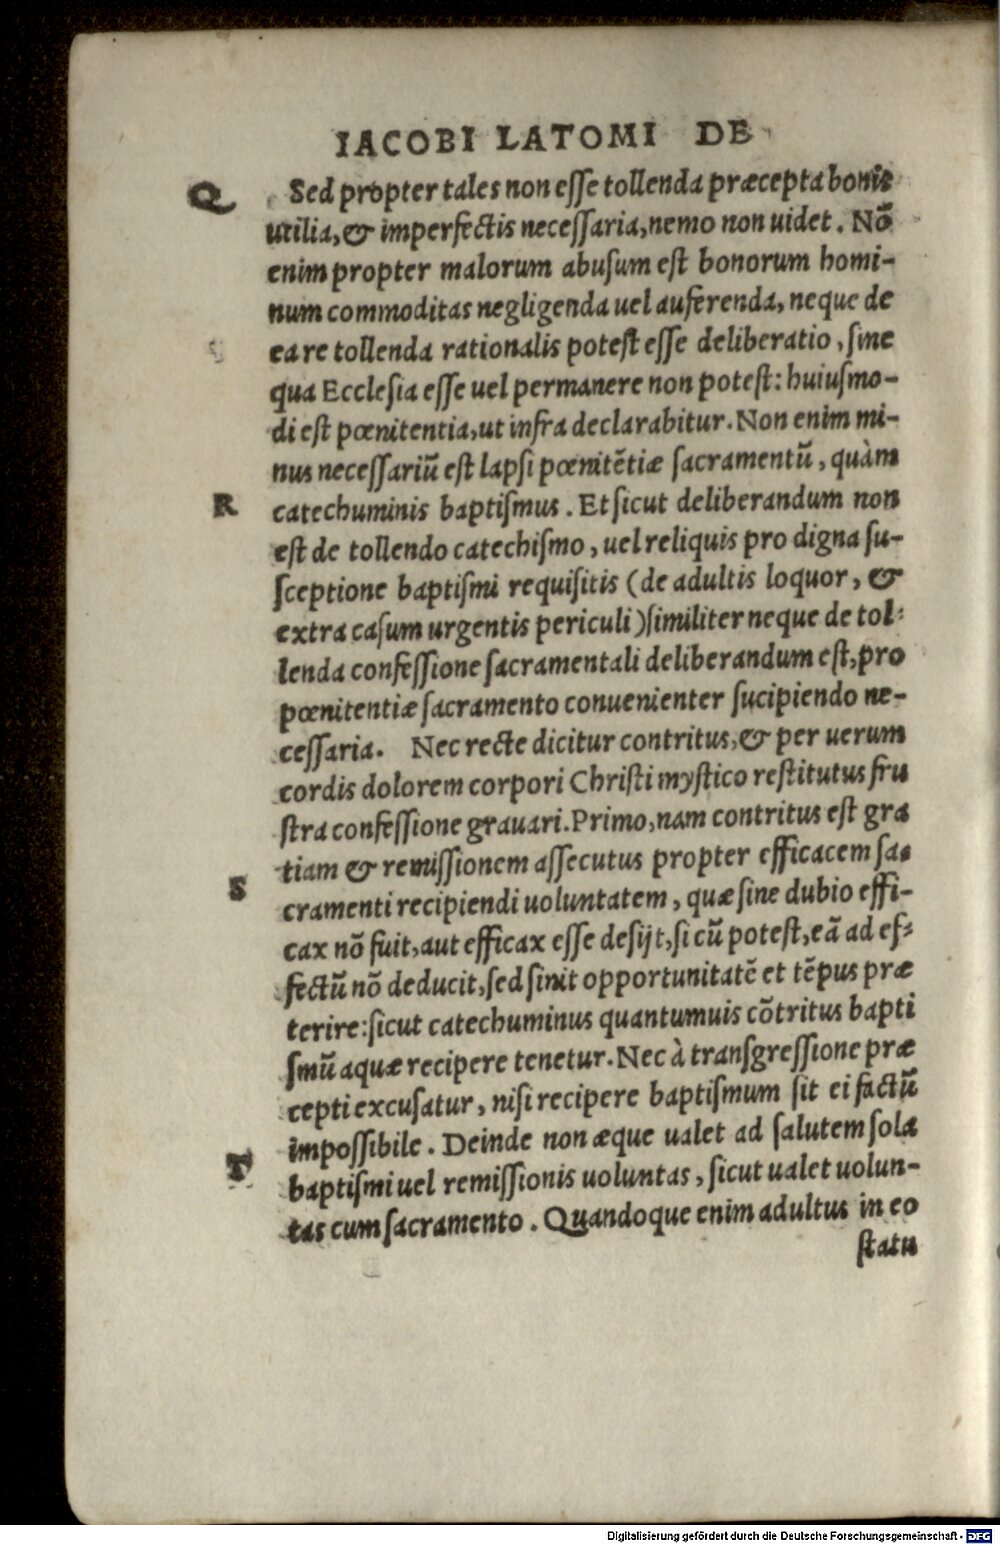 IACOBI LATOMI DE
Q Sed propter tales non eſſe tollenda præcepta bonis
utilia, & imperfectis neceſſaria, nemo non uidet. Nõ
enim propter malorum abuſum eſt bonorum homi-
num commoditas negligenda uel auferenda, neque de
ea re tollenda rationalis poteſt eſſe deliberatio, ſine
qua Eccleſia eſſe uel permanere non poteſt: huiuſmo-
di eſt pœnitentia, ut infra declarabitur. Non enim mi-
nus neceſſariũ eſt lapſi pœnitẽtiæ ſacramentũ, quàm
R catechuminis baptiſmus. Et ſicut deliberandum non
eſt de tollendo catechiſmo, uel reliquis pro digna ſu-
ſceptione baptiſmi requiſitis (de adultis loquor, &
extra caſum urgentis periculi) ſimiliter neque de tol-
lenda confeſſione ſacramentali deliberandum eſt, pro
pœnitentiæ ſacramento conuenienter ſucipiendo ne-
ceſſaria. Nec recte dicitur contritus, & per uerum
cordis dolorem corpori Chriſti myſtico reſtitutus fru
ſtra confeſſione grauari. Primo, nam contritus eſt gra
tiam & remiſſionem aſſecutus propter efficacem ſa-
S cramenti recipiendi uoluntatem, quæ ſine dubio effi-
cax nõ fuit, aut efficax eſſe deſijt, ſi cũ poteſt, eã ad ef-
fectũ nõ deducit, ſed ſinit opportunitatẽ et tẽpus præ
terire: ſicut catechuminus quantumuis cõtritus bapti
ſmũ aquæ recipere tenetur. Nec à tranſgreſſione præ
cepti excuſatur, niſi recipere baptiſmum ſit ei factũ
impoſſibile. Deinde non æque ualet ad ſalutem ſola
T baptiſmi uel remiſſionis uoluntas, ſicut ualet uolun-
tas cum ſacramento. Quandoque enim adultus in eo
ſtatu
Digitalisierung gefördert durch die Deutsche Forschungsgemeinschaft - DFG